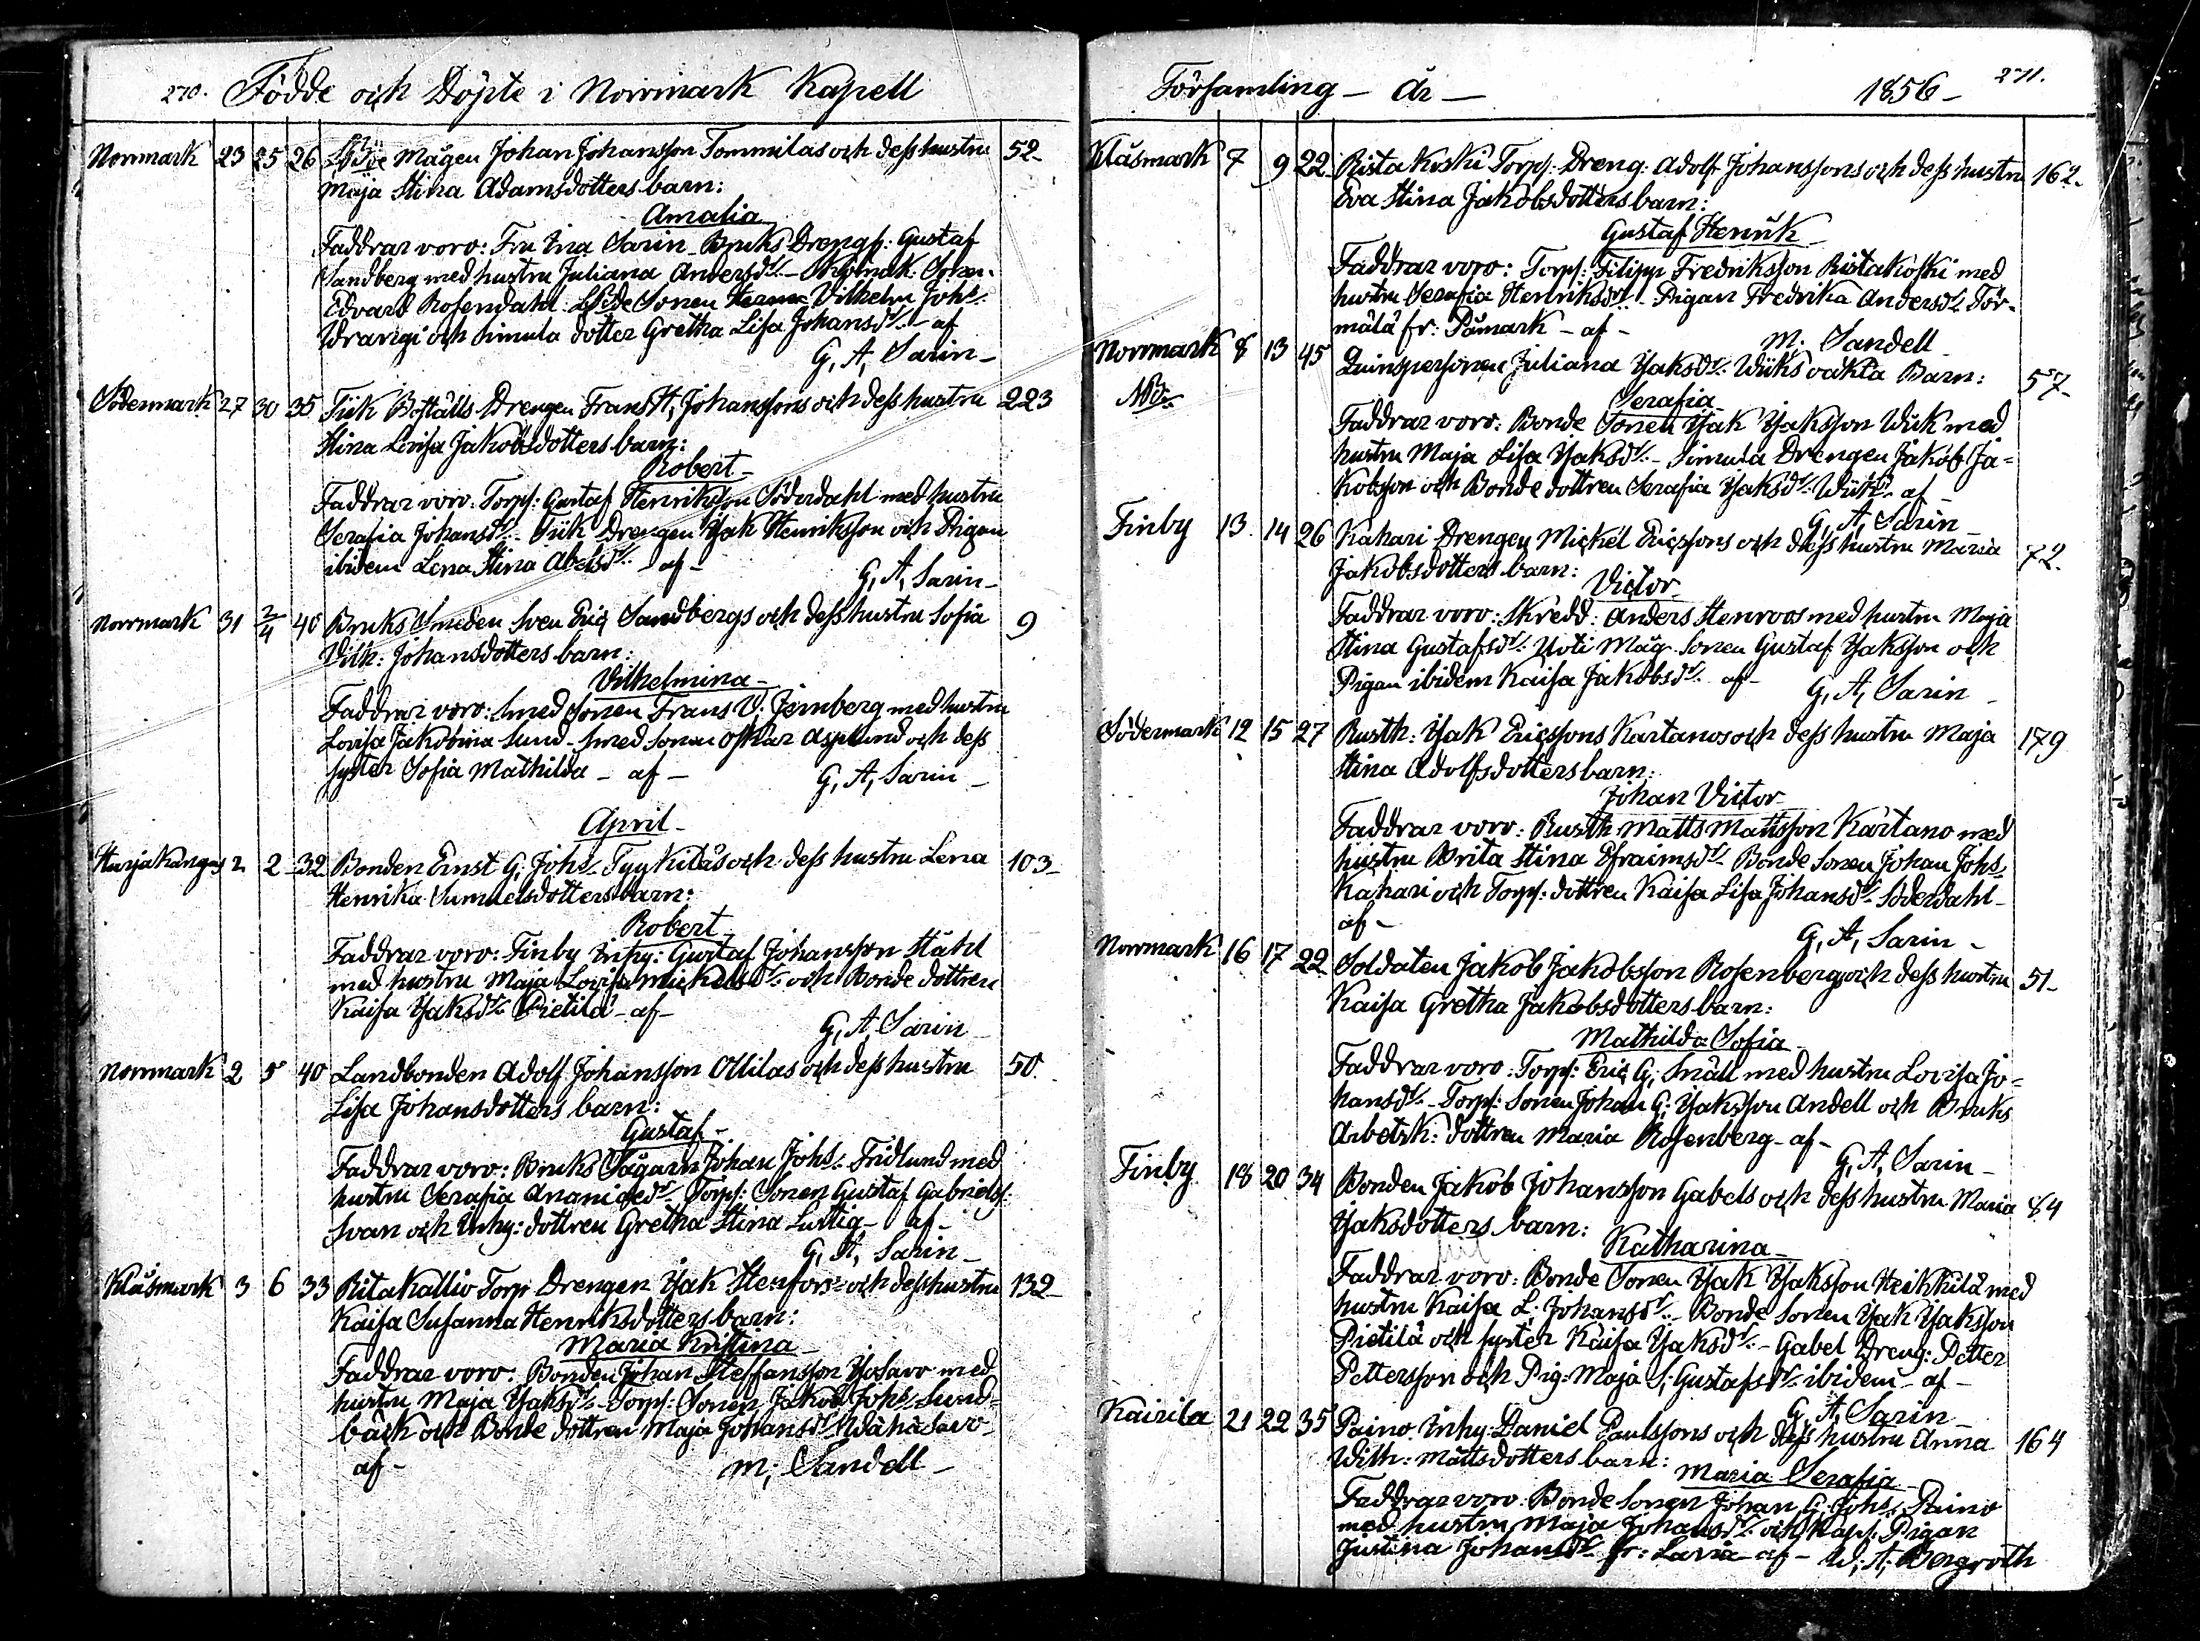 270. Födde och Döpte i Norrmark Kapell
Norrmark 23 25 26 Mågen Johan Johansson Tommilas och dess hustru 52
Maja Stina Adamsdotters barn:
Amalia
Faddrar voro: Fru Ina Sarin Bruks Drengs: Gustaf
Sandberg med hustru Juliana Andersdr
Edvard Rosendahl Sonen Vilhelm Johs
och Simula dotter Gretha Lisa Johansdr af
G. A. Sarin
Södermark 27 30 35 Tiik Boställs Drengen Frans H. Johanssons och dess hustru 223
Stina Lovisa Jakobsdotters barn:
Robert
Faddrar voro: Torps: Gustaf Henriksson Söderdahl med hustru
Serafia Johansdr Tiik Drengen Isak Henriksson och Pigan
ibidem Lena Stina Abelsdr af
G. A. Sarin
Norrmark 31 2/4 40 Bruks Smeden Sven Eric Sandbergs och dess hustru Sofia 9
Vilh: Johansdotters barn:
Vilhelmina
Faddrar voro: Smed Sonen Frans V. Jernberg med hustru
Lovisa Jakobina Sund Smed Sonen Oskar Asplund och dess
syster Sofia Mathilda af
G. A. Sarin
April
Harjakangas 2 2 32 Bonden Ernst G. Johs Tyykiläs och dess hustru Lena 103
Henrika Samuelsdotters barn:
Robert
Faddrar voro: Finby Inhy: Gustaf Johansson Ståhl
med hustru Maja Lovisa Mickelsdr och Bonde dottren
Kaisa Isaksdr Pietilä af
G. A. Sarin
Norrmark 2 5 40 Landbonden Adolf Johansson Ollilas och dess hustru 50
Lisa Johansdotters barn:
Gustaf
Faddrar voro: Bruks Sågaren Johan Johs Fridlund med
hustru Serafia Ananiaedr Torps: Sonen Gustaf Gabrielss:
Svan och Inhy: dottren Gretha Stina Lustig af
G. A. Sarin
Klåsmark 3 6 33 Ritakallio Torp Drengen Isak Stenfors och dess hustru 132
Kaisa Susanna Henriksdotters barn:
Maria Kristina
Faddrar voro: Bonden Johan Steffansson Isosavo med
hustru Maja Isaksdr Torps: Sonen Jakob Johs Sund-
bäck och Bonde dottren Maja Johansdr Wähäsavo
af
M. Sandell
Församling År 1856 271.
Klåsmark 7 9 22 Ristakoski Torps: Dreng: Adolf Johanssons och dess hustru 162
Eva Stina Jakobsdotters barn:
Gustaf Henrik
Faddrar voro: Torps: Filipp Fredriksson Ristakoski med
hustru Serafia Henriksdr Pigan Fredrika Andersdr Tör-
mälä fr: Påmark af
M. Sandell
Norrmark 8 13 45 Quinspersonen Juliana Isaksdr Wiiks oäkta Barn: 57
NB
Serafia
Faddrar voro: Bonde Sonen Isak Isaksson Wiik med
hustru Maja Lisa Isaksdr Simula Drengen Jakob Ja-
kobsson och Bonde dottren Serafia Isaksdr Wiik af
G. A. Sarin
Finby 13 14 26 Kahari Drengen Mickel Ericssons och dess hustru Maria 72
Jakobsdotters barn:
Victor
Faddrar voro: Skredd: Anders Stenroos med hustru Maja
Stina Gustafsdr Uoti Måg Sonen Gustaf Isaksson och
Pigan ibidem Kaisa Jakobsdr af
G. A. Sarin
Södermark 12 15 27 Rusth: Isak Ericssons Kartanos och dess hustru Maja 179
Stina Adolfsdotters barn:
Johan Victor
Faddrar voro: Rusth Matts Mattsson Kartano med
hustru Brita Stina Efraimsdr Bonde Sonen Johan Johs
Kahari och Torps: dottren Kaisa Lisa Johansdr Söderdahl
af
G. A. Sarin
Norrmark 16 17 22 Soldaten Jakob Jakobsson Rosenbergs och dess hustru 51
Kaisa Gretha Jakobsdotters barn:
Mathilda Sofia
Faddrar voro: Torps: Eric G. Snäll med hustru Lovisa Jo-
hansdr Torps: Sonen Johan G. Isaksson Andell och Bruks
Arbetsk: dottren Maria Rosenberg af
G. A. Sarin
Finby 18 20 34 Bonden Jakob Johansson Gabels och dess hustru Maria 84
Isaksdotters barn:
Katharina
Faddrar voro: Bonde Sonen Isak Isaksson Heikkilä med
hustru Kaisa L. Johansdr Bonde Sonen Isak Isaksson
Pietilä och syster Kaisa Isaksdr Gabel Dreng: Petter
Pettersson och Pig: Maja S. Gustafsdr ibidem af
G. A. Sarin
Kairila 21 22 35 Paino Inhy: Daniel Paulssons och dess hustru Anna 164
Wilh: Mattsdotters barn:
Maria Serafia
Faddrar voro: Bonde Sonen Johan G. Johs Paino
med hustru Maja Johansdr och Kapl. Pigan
Justina Johansdr fr: Lavia af W. A. Bergroth